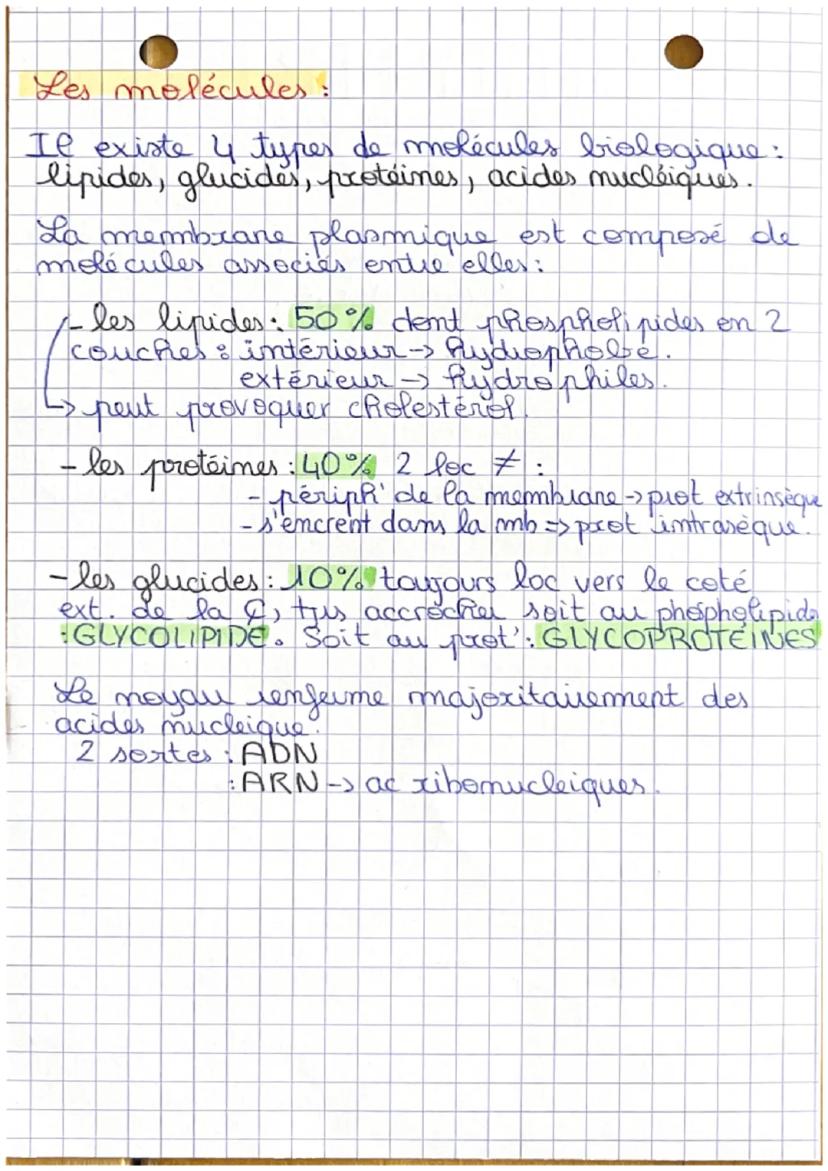 Les molécules :
Il existe 4 types de molécules biologique :
lipides, glucides, protéines, acides nucléiques.
La membrane plasmique est composé de
molécules associés entre elles :
- les lipides : 50% dont phospholipides en 2
couches : intérieur -> hydrophobe.
extérieur -> hydrophiles.
-> peut provoquer cholestérol.
- les protéines : 40% 2 loc ≠ :
- périph' de la membrane -> prot extrinsèque
- s'encrent dans la mb => prot intrasèque.
- les glucides : 10% toujours loc vers le coté
ext. de la ₵, tjrs accrocher soit au phospholipide
: GLYCOLIPIDE. Soit au prot' : GLYCOPROTÉINES
Le noyau renferme majoritairement des
acides nucleique.
2 sortes : ADN
: ARN -> ac ribonucleiques.